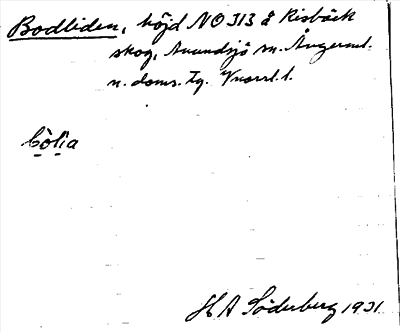 Bodliden, höjd NO 313 å Risbäck
skog, Anundsjö sn. Ångerml.
n. doms. tg. Vnorrl. l.
bo̤li̤a
H A Söderberg 1931